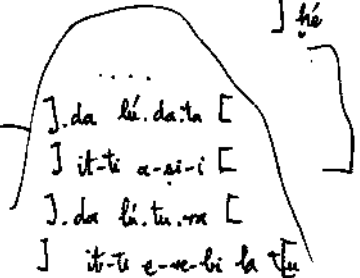 ] ḫé
. . . .
].da lú.da.ta [
] it-ti a-ṣi-i [
].da lú.tu.ra [
] it-ti e-re-bi la t[u